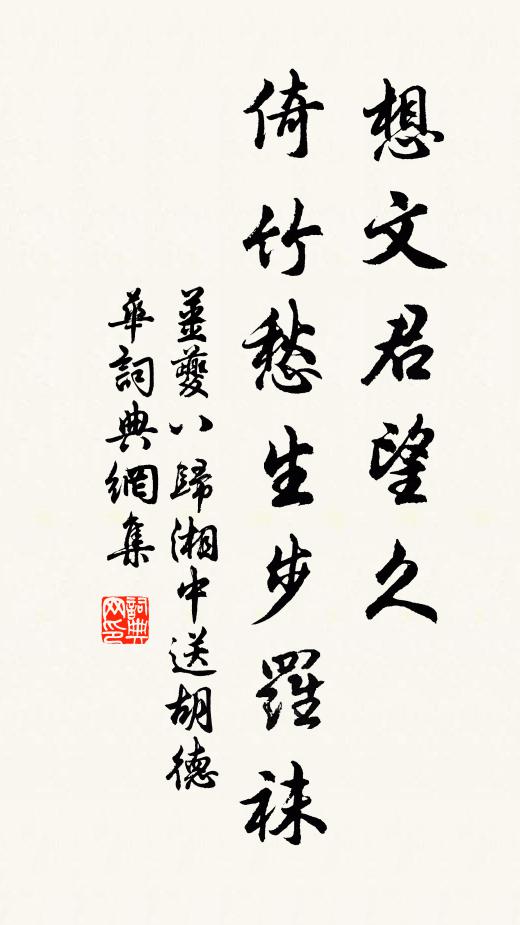 想文君望久
倚竹愁生步羅袜
姜夔八歸湘中送胡德
華詞典網集
詞典网印